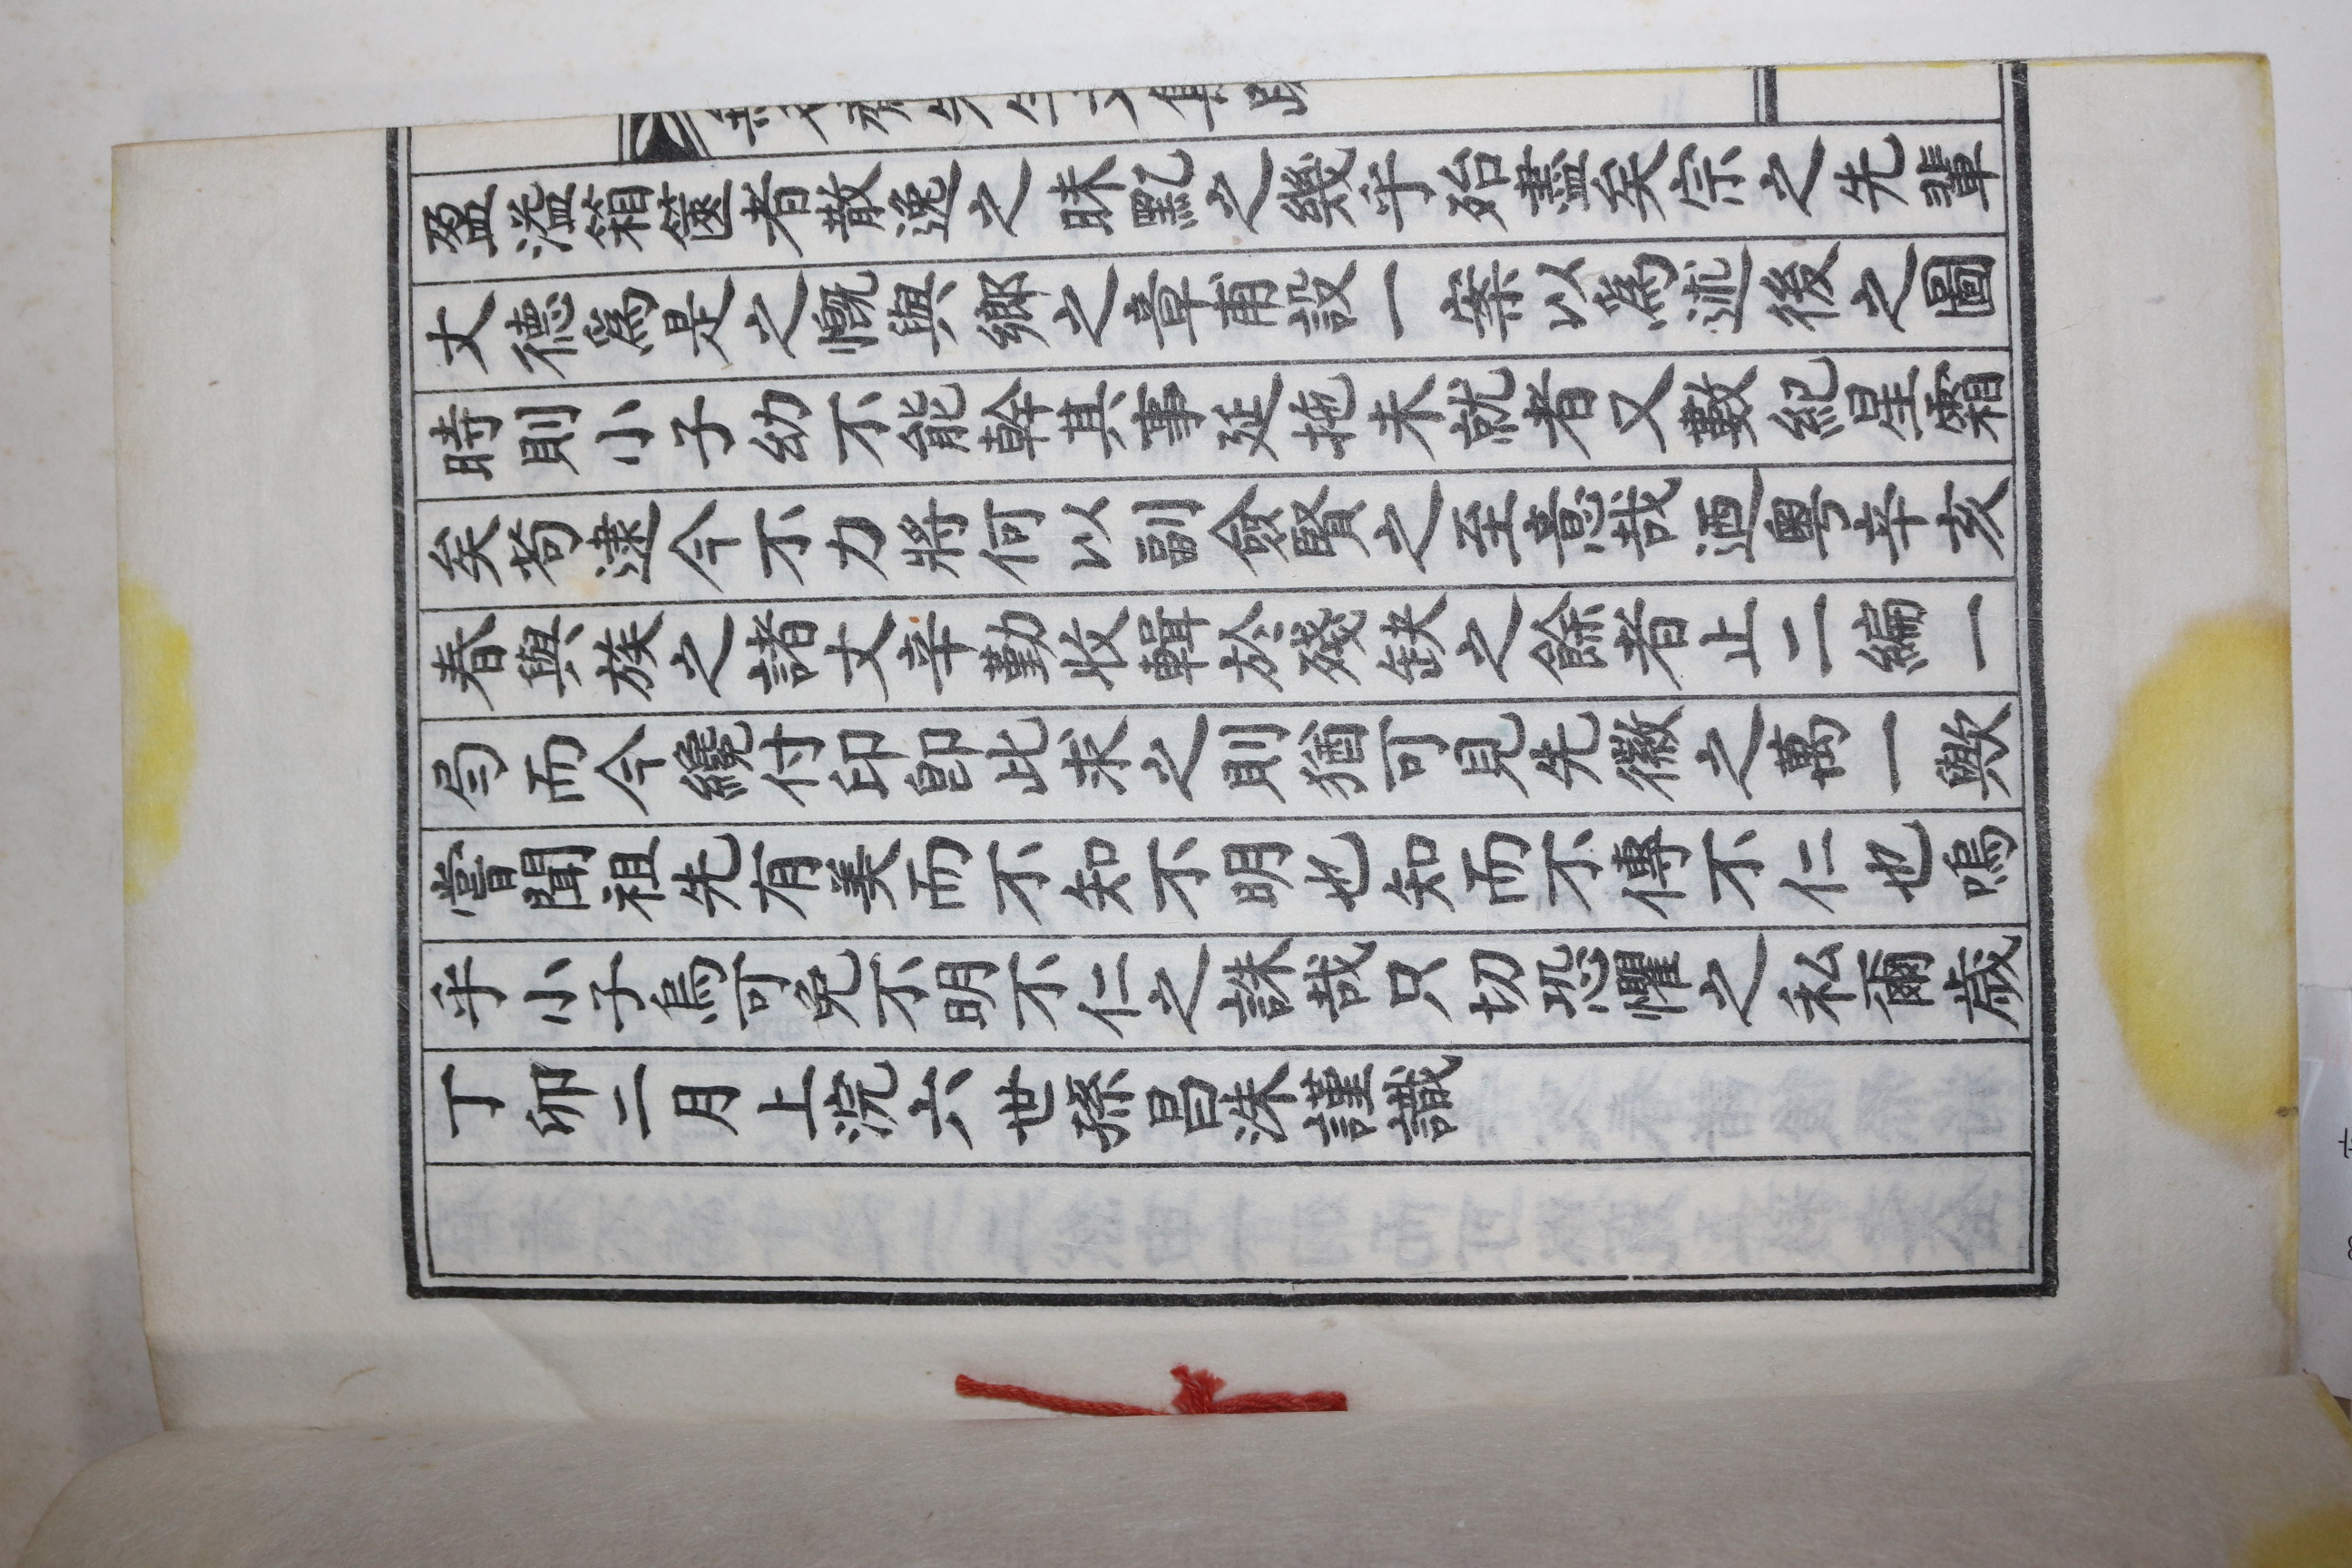 先生文集跋
盈溢箱篋者散逸之昧㸃之幾乎殆盡矣宗之先輩
丈德爲是之慨與鄉之章甫設一案以爲述後之圖
時則小子幼不能幹其事延拖未就者又數紀星霜
矣苟逮今不力將何以副僉賢之至意哉迺粤辛亥
春與族之諸丈辛勤收輯於殘缺之餘者止二編一
局而今纔付印卽此求之則猶可見先徽之萬一歟
嘗聞祖先有美而不知不明也知而不傳不仁也嗚
乎小子烏可免不明不仁之誅哉只切恐懼之私爾歲
丁卯二月上浣六世孫昌洙謹識